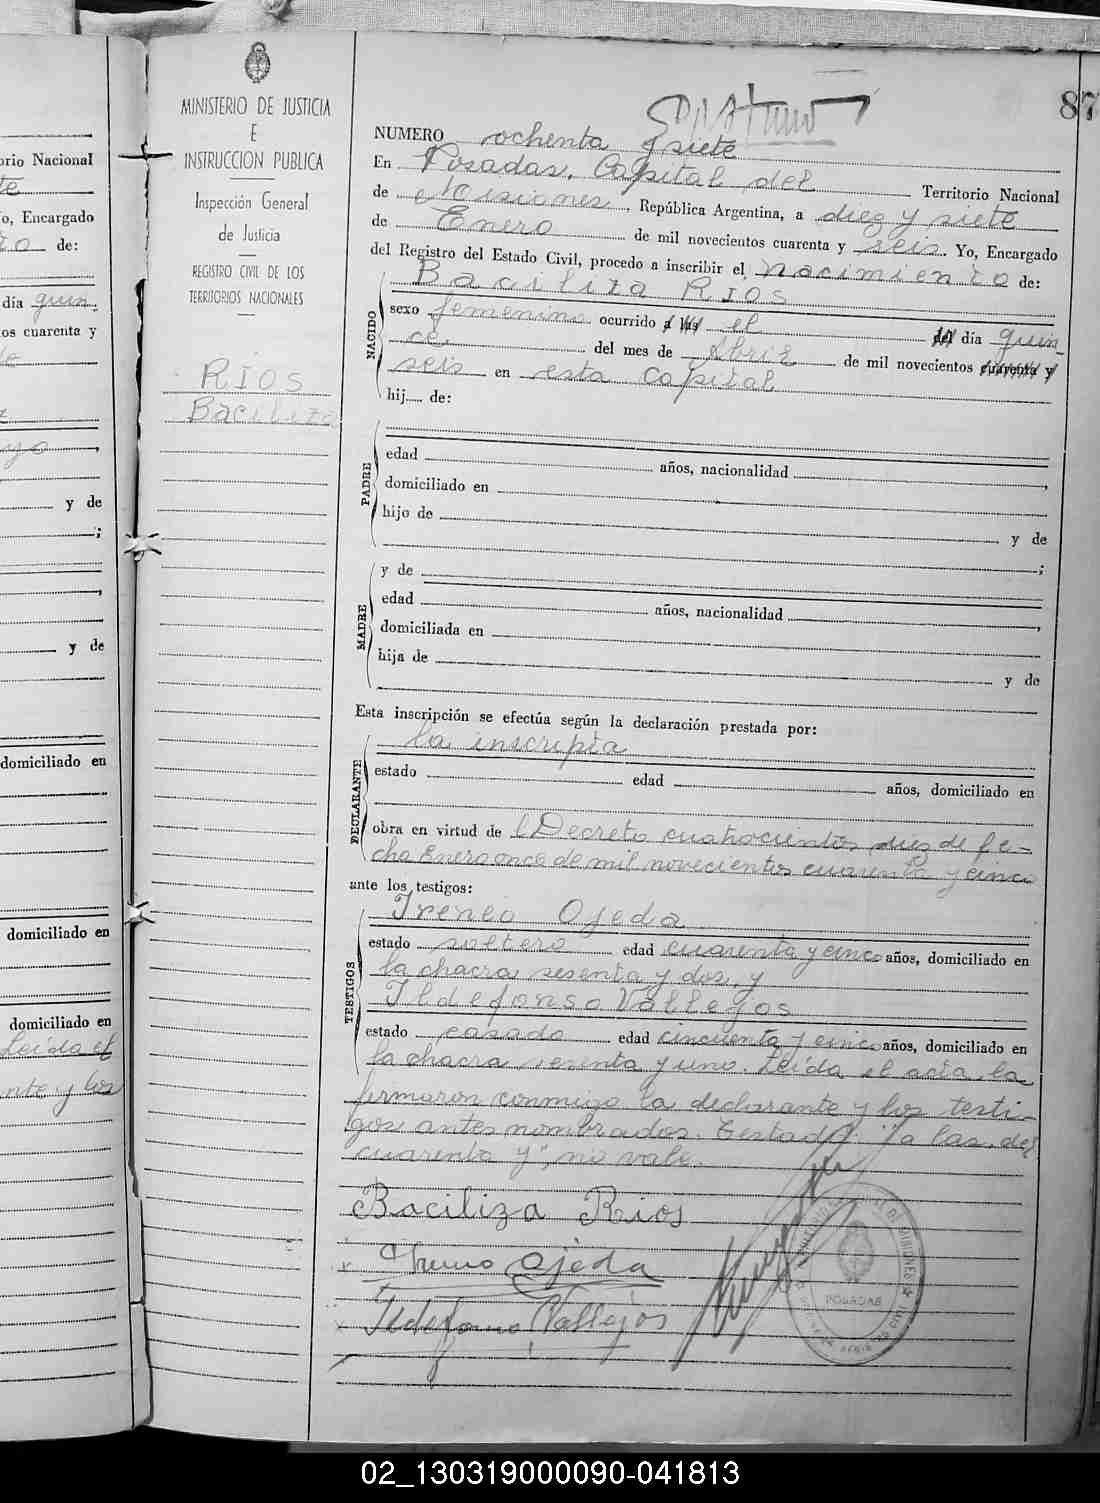 orio Nacional
o, Encargado
de:
día quin
os cuarenta y
y de
;
y de
domiciliado en
domiciliado en
domiciliado en
Leída el
nte y los
MINISTERIO DE JUSTICIA
E
INSTRUCCION PUBLICA
Inspección General
de Justicia
REGISTRO CIVIL DE LOS
TERRITORIOS NACIONALES
RIOS
Baciliza
87
NUMERO ochenta y siete
En Posadas, Capital del Territorio Nacional
de Misiones, República Argentina, a diez y siete
de Enero de mil novecientos cuarenta y seis. Yo, Encargado
del Registro del Estado Civil, procedo a inscribir el nacimiento de:
Baciliza RIOS
NACIDO
sexo femenino ocurrido a las el del día quin-
ce del mes de Abril de mil novecientos cuarenta y
seis en esta capital
hij de:
PADRE
edad años, nacionalidad ,
domiciliado en
hijo de y de
;
MADRE
y de
edad años, nacionalidad ,
domiciliada en
hija de y de
Esta inscripción se efectúa según la declaración prestada por:
DECLARANTE
la inscripta
estado edad años, domiciliado en
obra en virtud de l Decreto cuatrocientos diez de fe-
cha Enero once de mil novecientos cuarenta y cinco
ante los testigos:
TESTIGOS
Ireneo Ojeda
estado soltero edad cuarenta y cinco años, domiciliado en
la chacra sesenta y dos, y
Ildefonso Vallejos
estado casado edad cincuenta y cinco años, domiciliado en
la chacra sesenta y uno. Leída el acta, la
firmaron conmigo la declarante y los testi-
gos antes nombrados. Testado: "a las, del
cuarenta y", no vale.
Baciliza Rios
Ireneo Ojeda
Ildefonso Vallejos
POSADAS
02_130319000090-041813